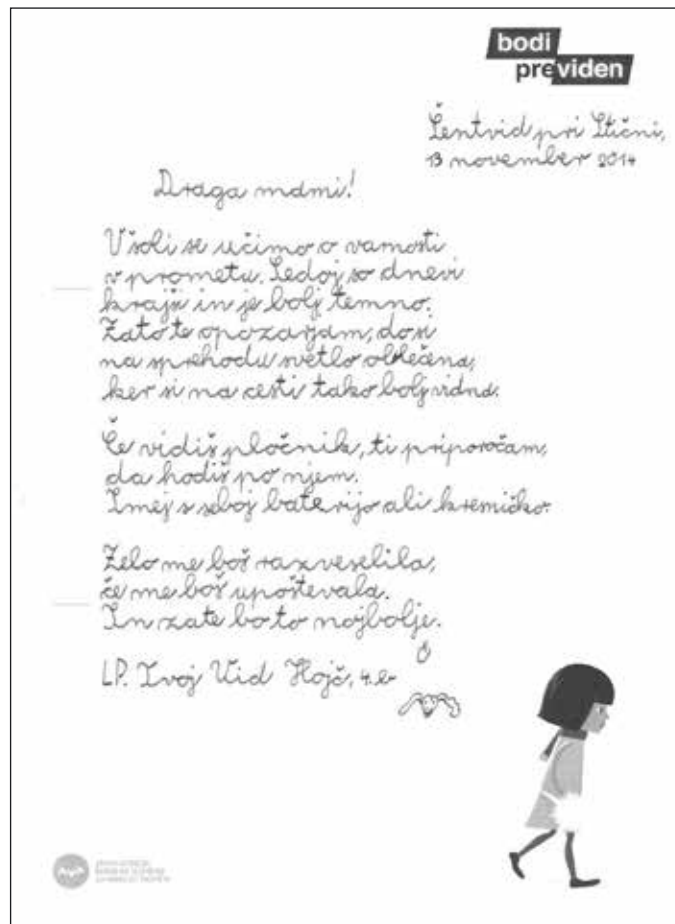 bodi
previden
Šentvid pri Stični,
13 november 2014
Draga mami!
V šoli se učimo o varnosti
v prometu. Sedaj so dnevi
krajši in je bolj temno.
Zato te opozarjam, da si
na sprehodu svetlo oblečena,
ker si na cesti tako bolj vidna.
Če vidiš pločnik, ti priporočam,
da hodiš po njem.
Imej s seboj baterijo ali kresničko.
Zelo me boš razveselila,
če me boš upoštevala.
In zate bo to najbolje.
LP. Tvoj Vid Hojč, 4. b